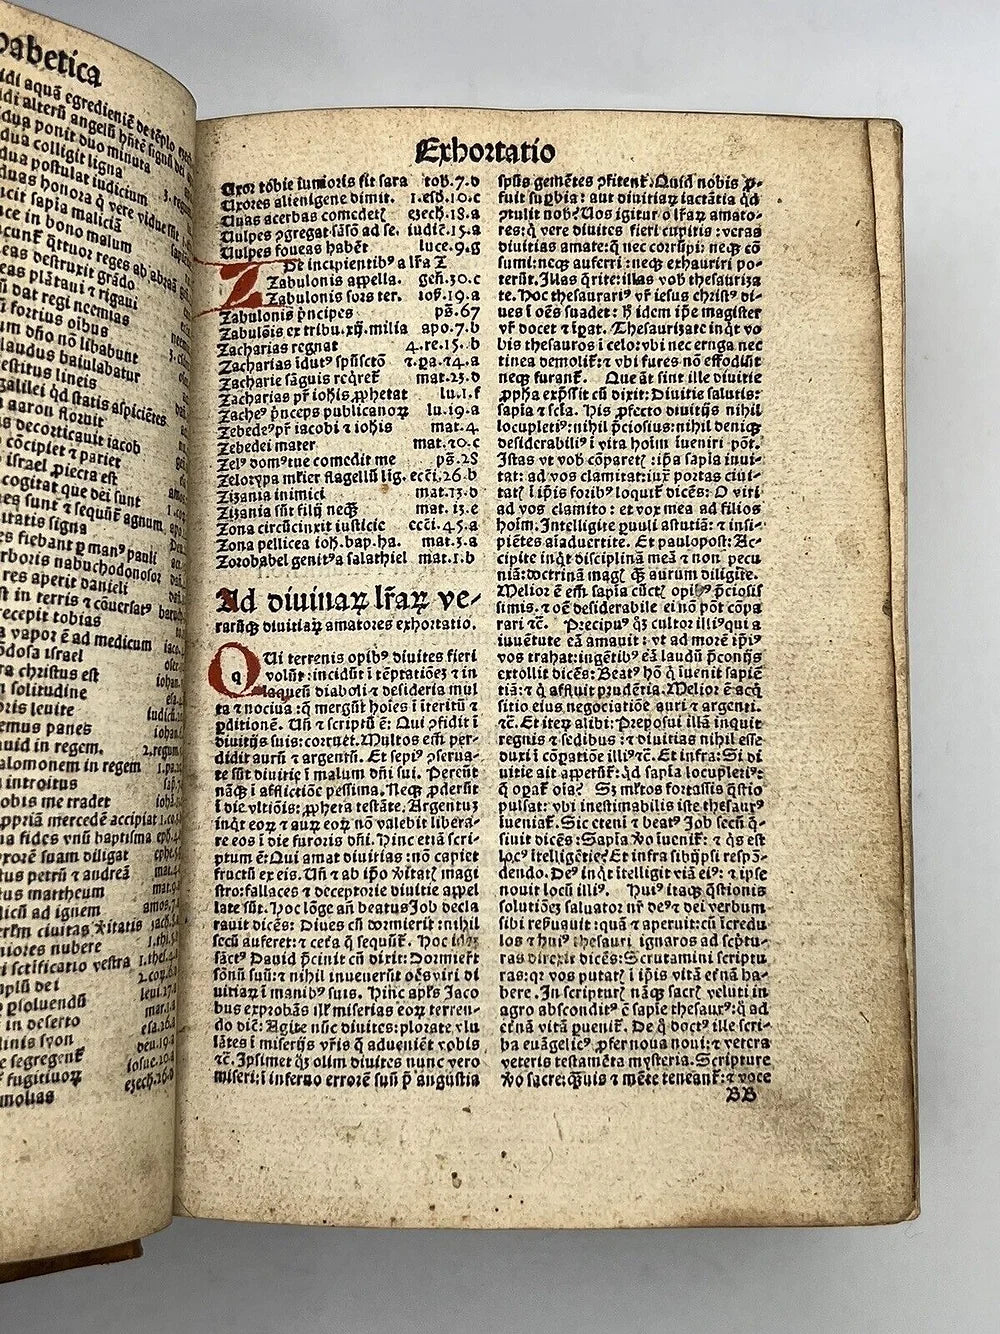 abetica
idi aquā egredienē de tēplo
idi alterū angelū hñtē signū dei
dua ponit duo minuta
dua colligit ligna
dua postulat iudicium
duas honora q̄ vere vidue
icit sapia maliciā
ce in bono malum
cunƙ q̄ttuor reges ab abraā
eas destruxit grādo
eas plātaui ⁊ rigaui
ū dat regi neemias
ū fortius oibus
um dño nō libabunt
laudus baiulabatur
estitus lineis
galilei q̄d statis aspiciētes
aaron floruit
s decorticauit iacob
cōcipiet ⁊ pariet
israel
cogitat que dei sunt
es sunt ⁊ sequūt agnum
itatis signa
es fiebant p man⁹ pauli
rboris nabuchodonosor
res aperit danieli
st in terris ⁊ cōuersat⁹
ecepit tobias
a vapor ē ad medicum
israel
ra christus est
solitudine
leuite
emus panes
auid in regem. 2.regum
alomonem in regem
introitus
obis me tradet
ppriā mercedē accipiat
a fides vnū baptisma
rorē suam diligat
tus petrū ⁊ andreā
tus mattheum
licū ad ignem amos.7
niores nubere
ri scificatio vestra
in deserto
linis syon
e segregent
fugitiuoꝝ ezech.
Exhortatio
Uxor tobie iunioris sit sara tob.7.d
Uxores alienigene dimit. 1.esd.10.c
Uuas acerbas comedet ezech.18.a
Uulpes ꝯgregat sāsō ad se. iudic̄.15.a
Uulpes foueas habēt luce.9.g
De incipientib⁹ a lr̄a Z
Zabulonis appella. geñ.30.c
Zabulonis sors ter. ios̄.19.a
Zabulonis p̄ncipes ps̄.67
Zabulōis ex tribu.xij.milia apo.7.b
Zacharias regnat 4.re.15.b
Zacharias īdut⁹ spūsctō 2.pa.24.a
Zacharie sāguis reqret̄ mat.23.d
Zacharias pr̄ iohis ꝓphetat lu.1.f
Zache⁹ p̄nceps publicanoꝝ lu.19.a
Zebede⁹ pr̄ iacobi ⁊ iohis mat.4
Zebedei mater mat.20.c
Zel⁹ dom⁹ tue comedit me ps̄.28
Zelotypa mlier flagellū lig. ecci.26.b
Zizania inimici mat.13.d
Zizania sūt filij neq̄ mat.13.e
Zona circūcinxit iusticie ecci.45.a
Zona pellicea ioh.bap.ha. mat.3.a
Zorobabel genit⁹ a salathiel mat.1.b
Ad diuinaꝝ lr̄aꝝ ve-
rarūq̄ diuitiaꝝ amatores exhortatio.
QUi terrenis opib⁹ diuites fieri
volūt: incidūt ī tēptatiōez ⁊ in
laqueū diaboli ⁊ desideria mul
ta ⁊ nociua: q̄ mergūt hoies ī īteritū ⁊
ꝑditionē. Uñ ⁊ scriptū ē: Qui ꝯfidit ī
diuitijs suis: corruet. Multos em̄ per-
didit aurū ⁊ argentū. Et sepi⁹ ꝯserua-
te sūt diuitie ī malum dñi sui. Pereūt
nāq̄ ī afflictiōe pessima. Neq̄ ꝓderūt
ī die vltiōis: ꝓpheta testāte. Argentuz
inq̄t eoꝝ ⁊ auꝝ eoꝝ nō valebit libera-
re eos ī die furoris dñi. Hinc etiā scri-
ptum ē: Qui amat diuitias: nō capiet
fructū ex eis. Uñ ⁊ ab ip̄o v̄itat̄ magi
stro: fallaces ⁊ deceptorie diuitie appel
late sūt. Hoc lōge añ beatus Job decla
rauit dicēs: Diues cū dormierit: nihil
secū auferet: ⁊ cet̄a q̄ sequūt̄. Hoc idez
sāct⁹ Dauid p̄cinit cū dixit: Dormier̄t
sōnū suū: ⁊ nihil inuenerūt oēs viri di
uitiaꝝ ī manib⁹ suis. Hinc ap̄ls Jaco
bus exprobās ill̄ miserias eoꝝ terren-
do dic̄: Agite nūc diuites: plorate vlu
lātes ī miserijs vr̄is q̄ aduenient vobis
⁊c̄. Ipsimet q̄ olim diuites nunc vero
miseri: ī inferno errorē suū p̄ angustia
spūs gemētes ꝯfitent̄. Quid nobis ꝓ-
fuit suꝑbia: aut diuitiaꝝ iactātia qd̄
ꝯtulit nob̄? Uos igitur o lr̄aꝝ amato-
res: q̄ vere diuites fieri cupitis: veras
diuitias amate: q̄ nec corrūpi: neq̄ cō
sumi: neq̄ auferri: neq̄ exhauriri po-
terūt. Illas q̄rite: illas vob̄ thesauriza
te. Hoc thesaurari⁹ vr̄ iesus christ⁹ di-
ues ī oēs suadet: H̄ idem ip̄e magister
vr̄ docet ⁊ īpat. Thesaurizate inq̄t vo
bis thesauros ī celo: vbi nec erugo nec
tinea demolit̄: ⁊ vbi fures nō effodiūt
neq̄ furant̄. Que āt sint ille diuitie
ꝓpha exp̄ssit cū dixit: Diuitie salutis:
sapia ⁊ scīa. His ꝓfecto diuitijs nihil
locupleti⁹: nihil p̄ciosius: nihil deniq̄
desiderabili⁹ ī vita hoīm īueniri pōt.
Istas vt vob̄ cōparet̄: ip̄a sapia inui-
tat: ad vos clamitat: iux̄ portas ciui-
tat̄ ī ip̄is forib⁹ loquit̄ dicēs: O viri
ad vos clamito: et vox mea ad filios
hoīm. Intelligite ꝑuuli astutiā: ⁊ insi-
piētes aīaduertite. Et paulopost: Ac-
cipite inq̄t disciplinā meā ⁊ non pecu
niā: doctrinā maḡ q̄ aurum diligite.
Melior ē em̄ sapia cūct̄ opib⁹ p̄ciosis
simis. ⁊ oē desiderabile ei nō pōt cōpa
rari ⁊c̄. Precipu⁹ q̄z cultor illi⁹ qui a
iuuētute eā amauit: vt ad morē ip̄i⁹
vos trahat: ingētib⁹ eā laudū p̄conijs
extollit dicēs: Beat⁹ hō q̄ īuenit sapiēn
tiā: ⁊ q̄ affluit prudētia. Melior ē acq̄
sitio eius negociatiōe auri ⁊ argenti.
⁊c̄. Et iteꝝ alibi: Preposui illā inquit
regnis ⁊ sedibus: ⁊ diuitias nihil esse
duxi ī cōpatiōe illi⁹ ⁊c̄. Et infra: Si di
uitie āīt appetūt̄: qd̄ sapia locupleti⁹:
q̄ opat̄ oīa? Sz mltos fortassis q̄stio
pulsat: vbi inestimabilis iste thesaur⁹
īueniat̄. Sic eteni ⁊ beat⁹ Job secū q̄-
siuit dicēs: Sapīa v̄o īuenit̄: ⁊ q̄s est
loc⁹ ītelligētie? Et infra sibijpsi respō-
dendo. De⁹ inq̄t ītelligit viā ei⁹: ⁊ ip̄se
nouit locū illi⁹. Hui⁹ itaq̄ q̄stionis
solutiōez saluator nr̄ de⁹ ⁊ dei verbum
sibi reseruauit: quā ⁊ aperuit: cū īcredu
los ⁊ hui⁹ thesauri ignaros ad sc̄ptu-
ras direxit dicēs: Scrutamini scriptu
ras: qr̄ vos putat̄ ī ip̄is vitā et̄nā ha-
bere. In scriptur̄ nāq̄ sacr̄ veluti in
agro abscondit⁹ ē sapie thesaur⁹: q̄ ad
et̄nā vitā ꝑuenit̄. De q̄ doct⁹ ille scri-
ba euāgelic⁹ ꝓfer noua noui: ⁊ vetera
veteris testamēta mysteria. Scripture
v̄o sacre: q̄uis ⁊ mēte teneant̄: ⁊ voce
BB